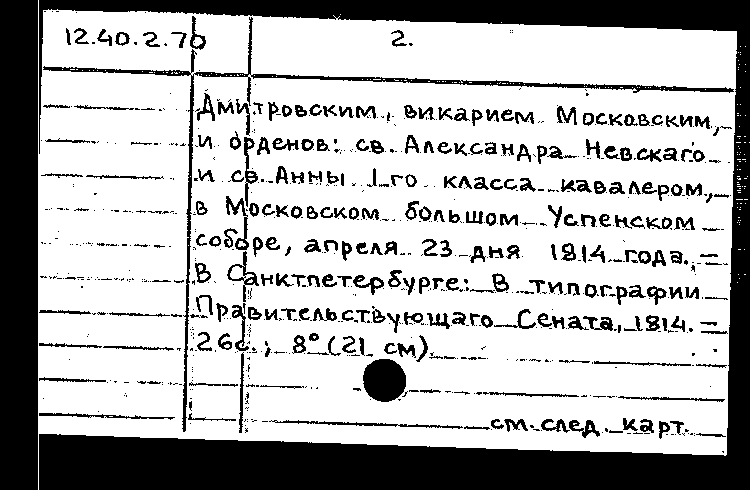 12.40.2.70 2.
Дмитровским, викарием Московским,
и орденов: св. Александра Невскаго
и св. Анны 1-го класса кавалером,
в Московском большом Успенском
соборе, апреля 23 дня 1814 года. =
В Санктпетербурге: В типографии
Правительствующаго Сената, 1814. =
26с.; 8° (21 см).
см. след. карт.